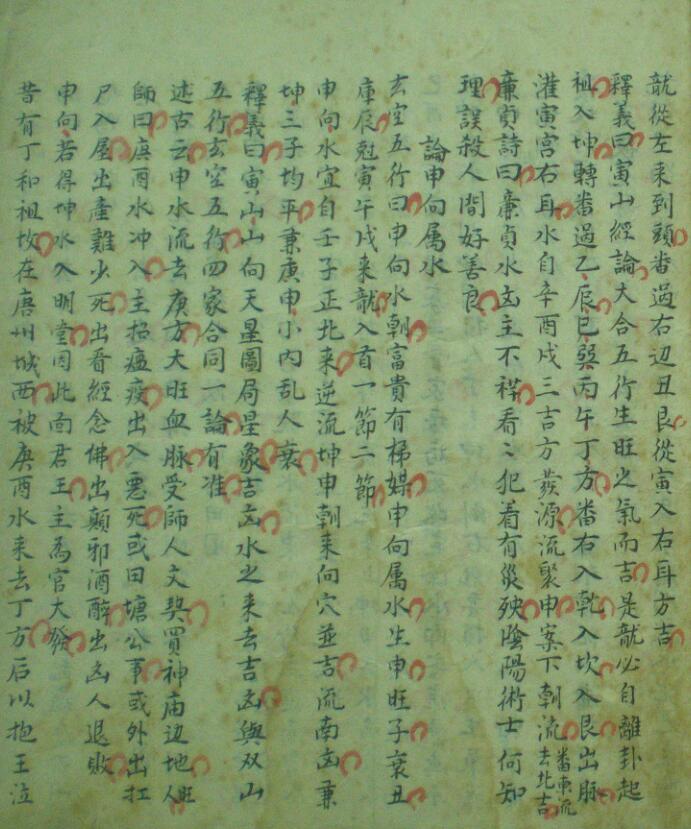 龍從左来到頭畨過右辺丑艮從寅入右耳方吉
釋義曰寅山經論大合五行生旺之氣而吉是龍必自離卦起
祖入坤轉畨過乙辰巳巽丙午丁方畨右入乾入坎入艮出脉
灌寅宮右耳水自辛酉戌三吉方發源流聚申案下朝流畨東流去北吉
廉貞詩曰廉貞水凶主不祥看〻犯着有災殃陰陽術士何知
理誤殺人間好善良
論申向属水
玄空五行曰申向水朝富貴有梯媒申向属水生申旺子衰丑
庫辰尅寅午戌来龍入首一節二節
申向水宜自壬子正北来逆流坤申朝来向穴並吉流南凶兼
坤三子均平兼庚申小内乱人衰
釋義曰寅山山向天星圖局星象吉凶水之来去吉凶與双山
五行玄空五行四家合同一論有准
述古云申水流去庚方大旺血脉受師人文契買神庙边地人旺
師曰庚酉水冲入主招瘟疫出入悪死或田塘公事或外出扛
尸入屋出產難少死出看經念佛出顛邪酒醉出凶人退敗
申向若得坤水入明堂因此面君王主為官大發
昔有丁和祖坟在唐州城西被庚酉水来去丁方后以抱王泣